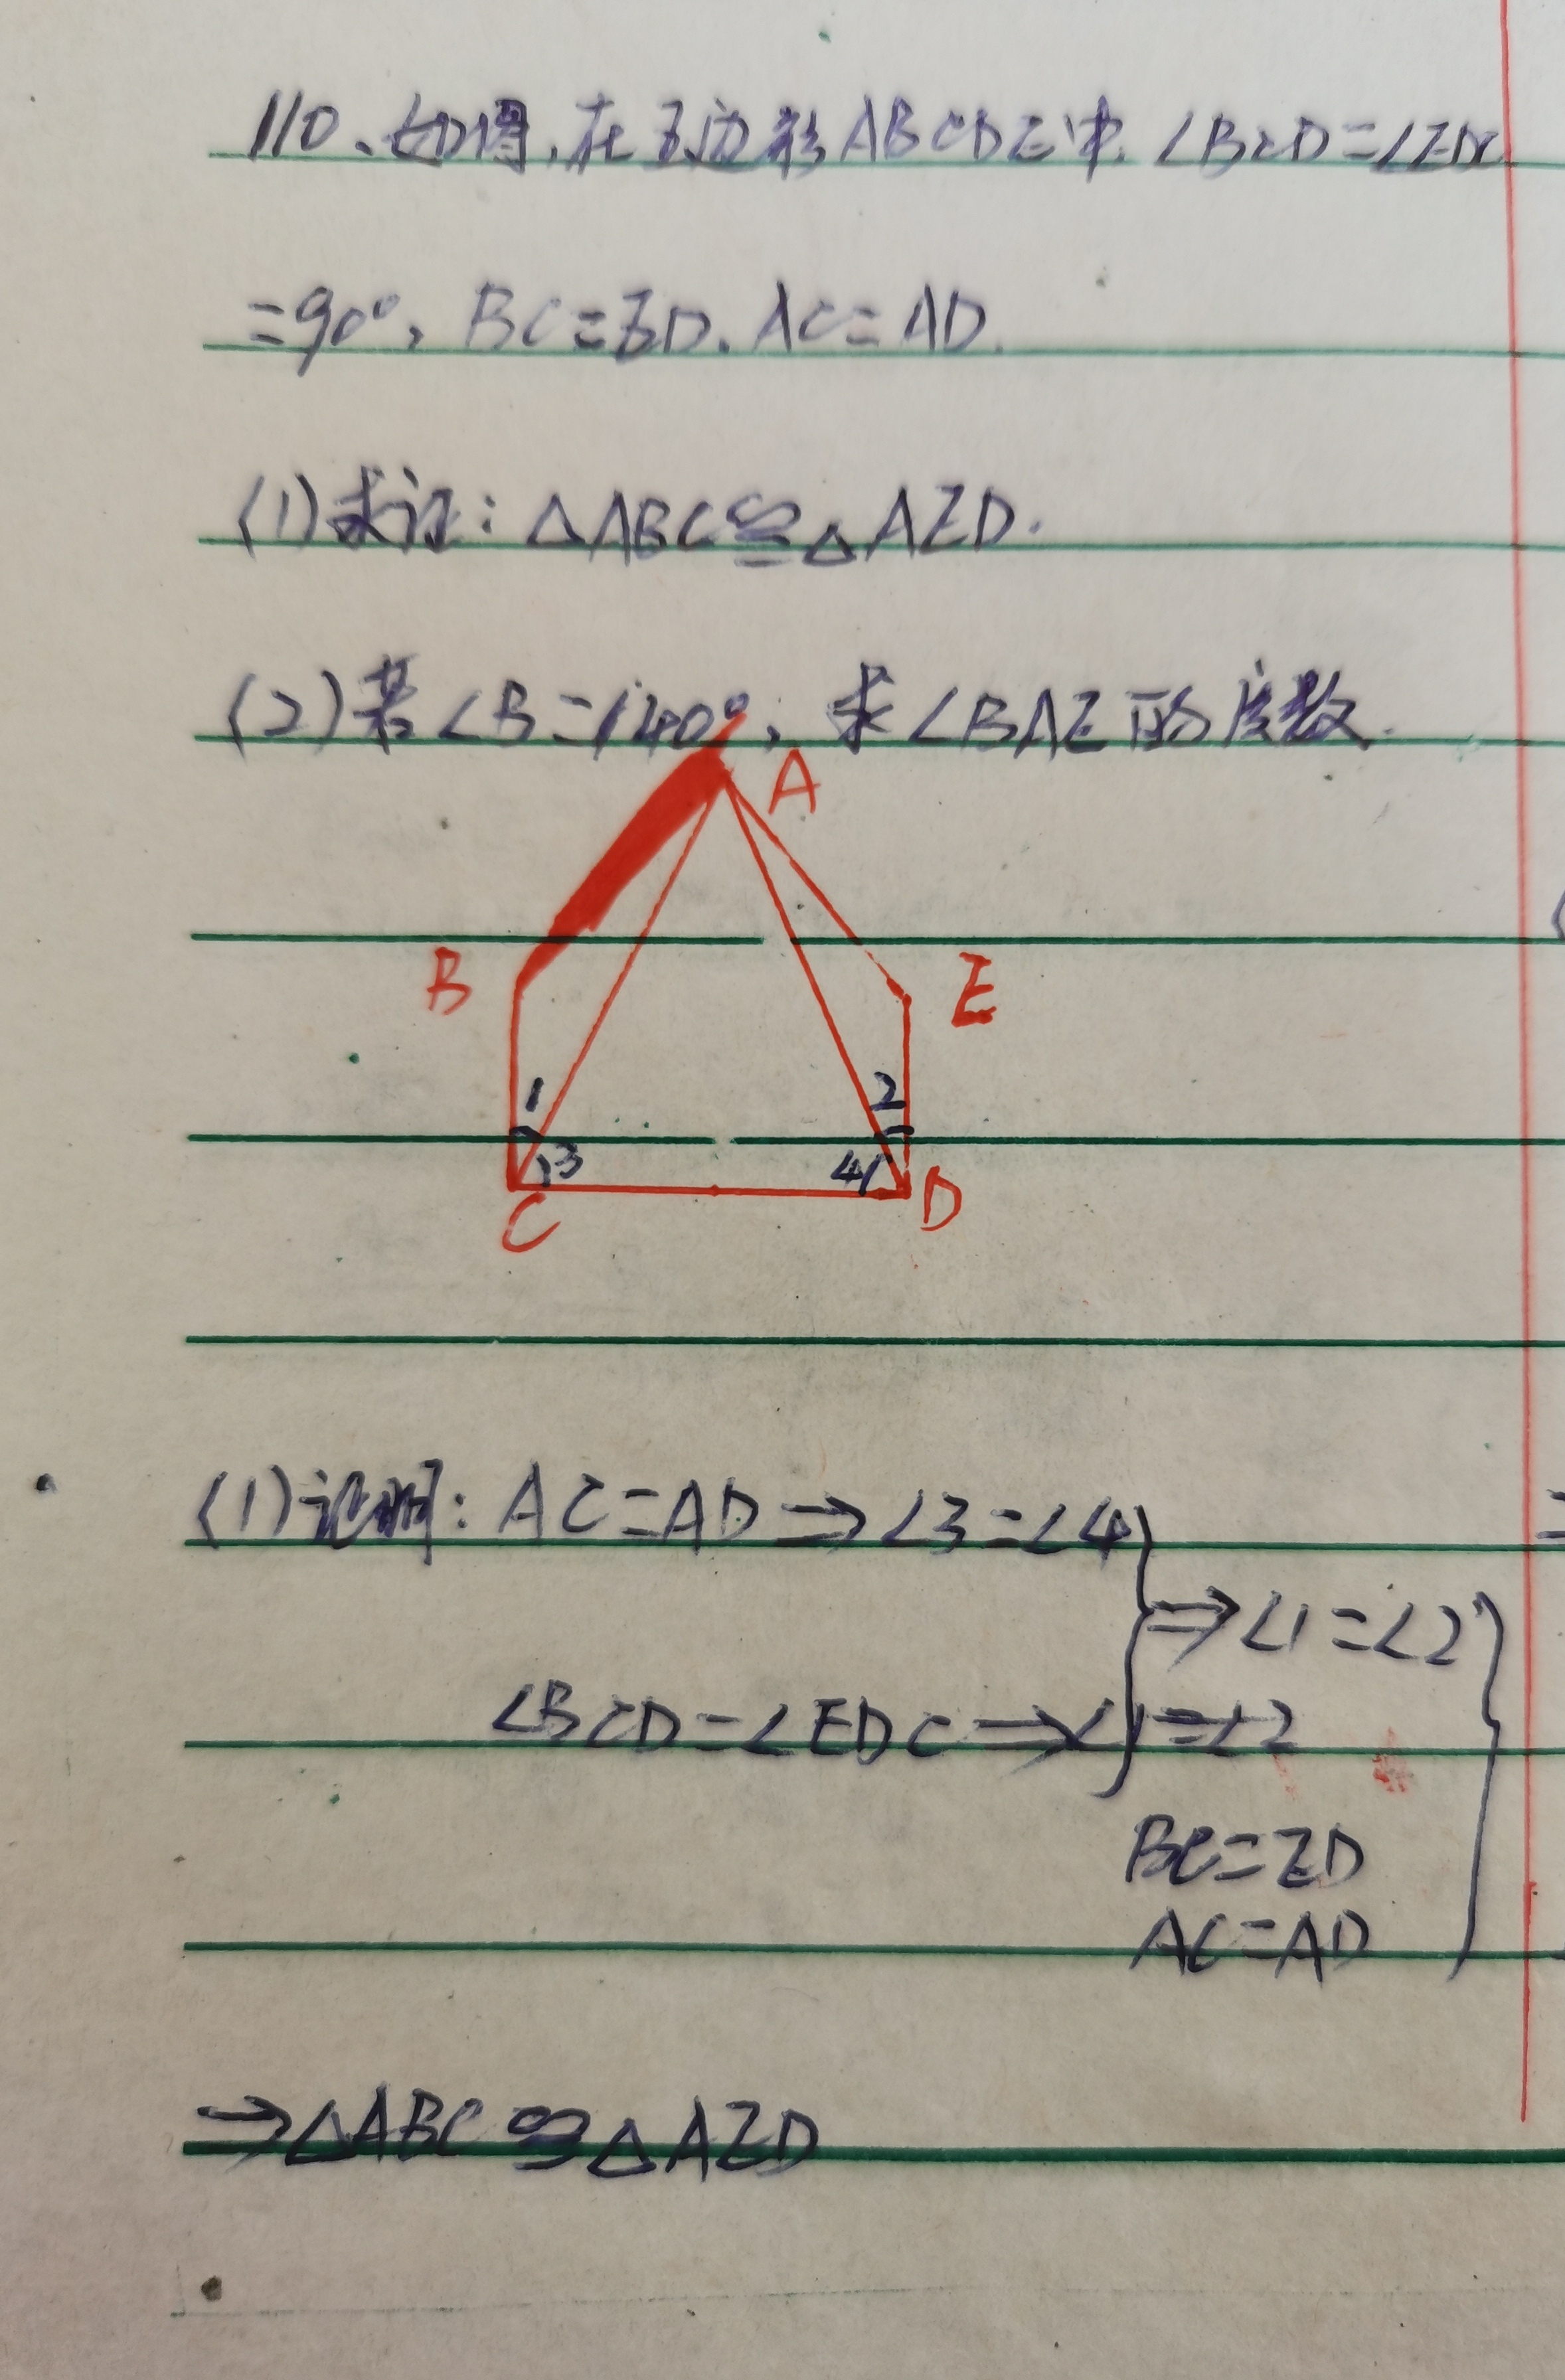 110、如图,在五边形ABCDE中,∠BCD=∠EDC
=90°,BC=ED.AC=AD.
(1)求证:△ABC≌△AED.
(2)若∠B=140°,求∠BAE的度数.
A
B
E
1
2
3
4
C
D
(1)证明:AC=AD⇒∠3=∠4
⇒∠1=∠2
∠BCD=∠EDC⇒∠1=∠2
BC=ED
AC=AD
⇒△ABC≌△AED